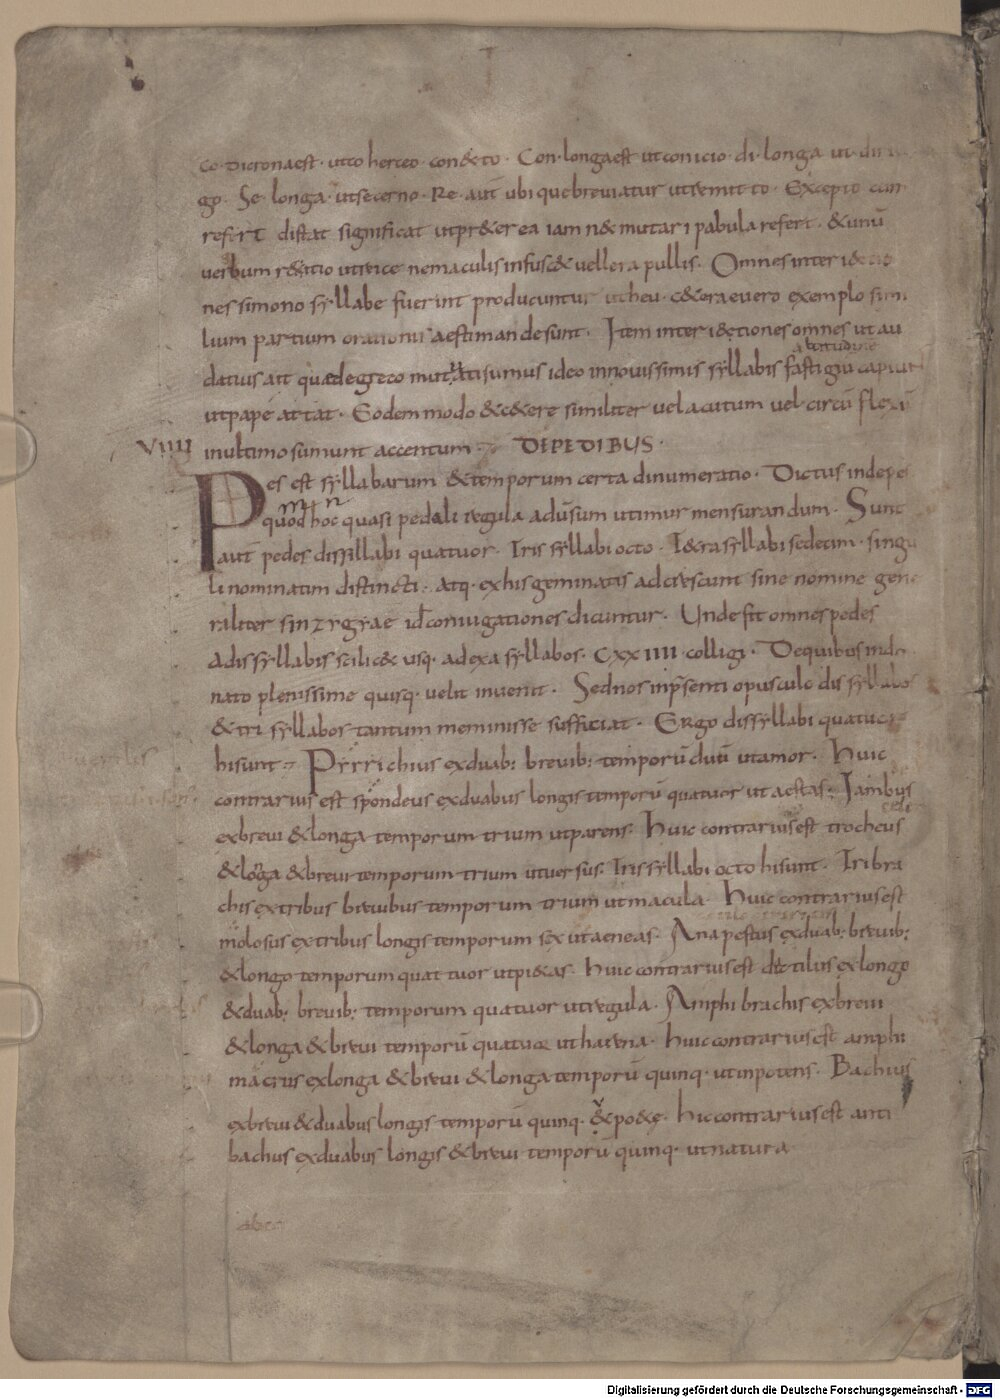 co. dicronaest. utco herceo. con&to. Con. longaest utconicio. di. longa ut. diri
go. Se longa. utsecerno. Re. aut ubi quebreviatur utremitto. Excepto cum
refert distat significat utpr&erea iam n& mutari pabula refert. & unū
uerbum r&itio utreice nemaculis infusc& uellera pullis. Omnes interi&tio
nes simono syllabe fuerint producuntur utheu. c&eraeuero exemplo simi
lium partium orationū aestimande sunt. Item interi&ctiones omnes ut au
datius ait quaedegreco mut&atisumus ideo innouissimis syllabis fastigiū capiut
utpape attat. Eodemmodo & c&ere similiter uel acutum uel circū flexū
VIIII inultimo sumunt accentum. DEPEDIBUS.
Pes est syllabarum & temporum certa dinumeratio. Dictus indepes
quod hoc quasi pedali regula adūsum utimur mensurandum. Sunt
aut pedes dissillabi quatuor. Tris syllabi octo. T&rasyllabi sedecim. singu
li nominatim distincti. atq. exhis geminatis adcrescunt sine nomine gene
raliter sinzygyae id coniugationes dicuntur. Unde fit omnes pedes
adissyllabis scilic& usq. adexa syllabos. cxxiiii. colligi. Dequibus indo
nato plenissime quisq. uelit inuenit. Sednos inpsenti opusculo dissyllabos
& trisyllabos tantum meminisse sufficiat. Ergo dissyllabi quatuor
hisunt. Pyrrichius exduab: breuib: temporū duū utamor. Huic
contrarius est spondeus exduabus longis temporū quatuor ut aestas. Iambus
exbreui & longa temporum trium utparens. Huic contrarius est trocheus
& loga & breui temporum trium utuersus. Trissyllabi octo hisunt. Tribra
chis extribus breuibus temporum trium utmacula. Huic contrarius est
molosus extribus longis temporum sex utaeneas. Anapestus exduab: breuib:
& longo temporum quattuor utpi&as. Huic contrarius est dactilus exlongo
& duab: breuib: temporum quatuor utregula. Amphibrachis exbreui
& longa & breui temporū quatuor uthaena. Huic contrarius est amphi
macrus exlonga & breui & longa temporū quinq. utinpotens. Bachius
exbreui & duabus longis temporū quinq. & po&e. hic contrarius est anti
bachus exduabus longis & breui temporū quinq. utnatura
Digitalisierung gefördert durch die Deutsche Forschungsgemeinschaft - DFG